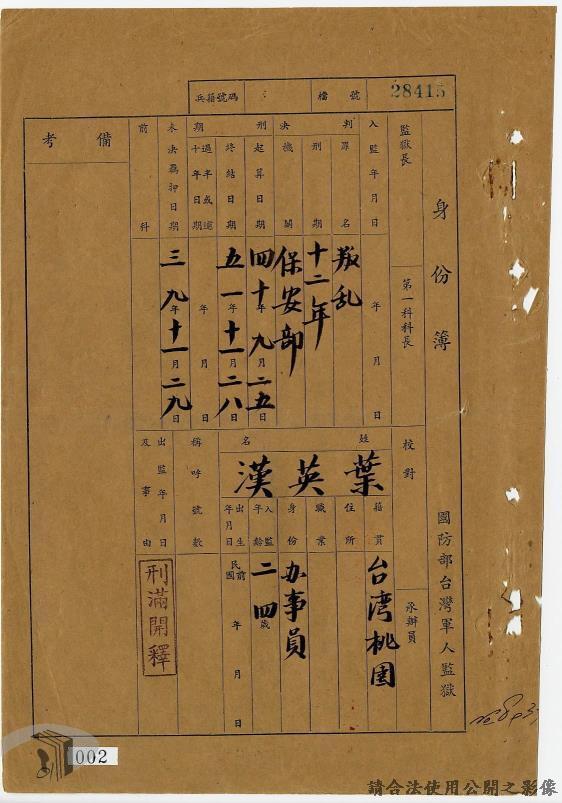 28415
檔號
兵籍號碼
身份簿
國防部台灣軍人監獄
監獄長
第一科科長
校對
承辦員
入監年月日
年月日
判決
罪名
叛乱
刑期
十二年
機關
保安部
刑期
起算日期
四十年九月二五日
終結日期
五一年十一月二八日
過半或逾十年日期
年月日
未決羈押日期
三九年十一月二九日
前科
備考
姓名
葉英漢
籍貫
台湾桃園
住所
職業
身份
办事員
入監年齡
二四歲
出生年月日
民前國 年月日
稱呼號數
出監年月日及事由
刑滿開釋
002
請合法使用公開之影像